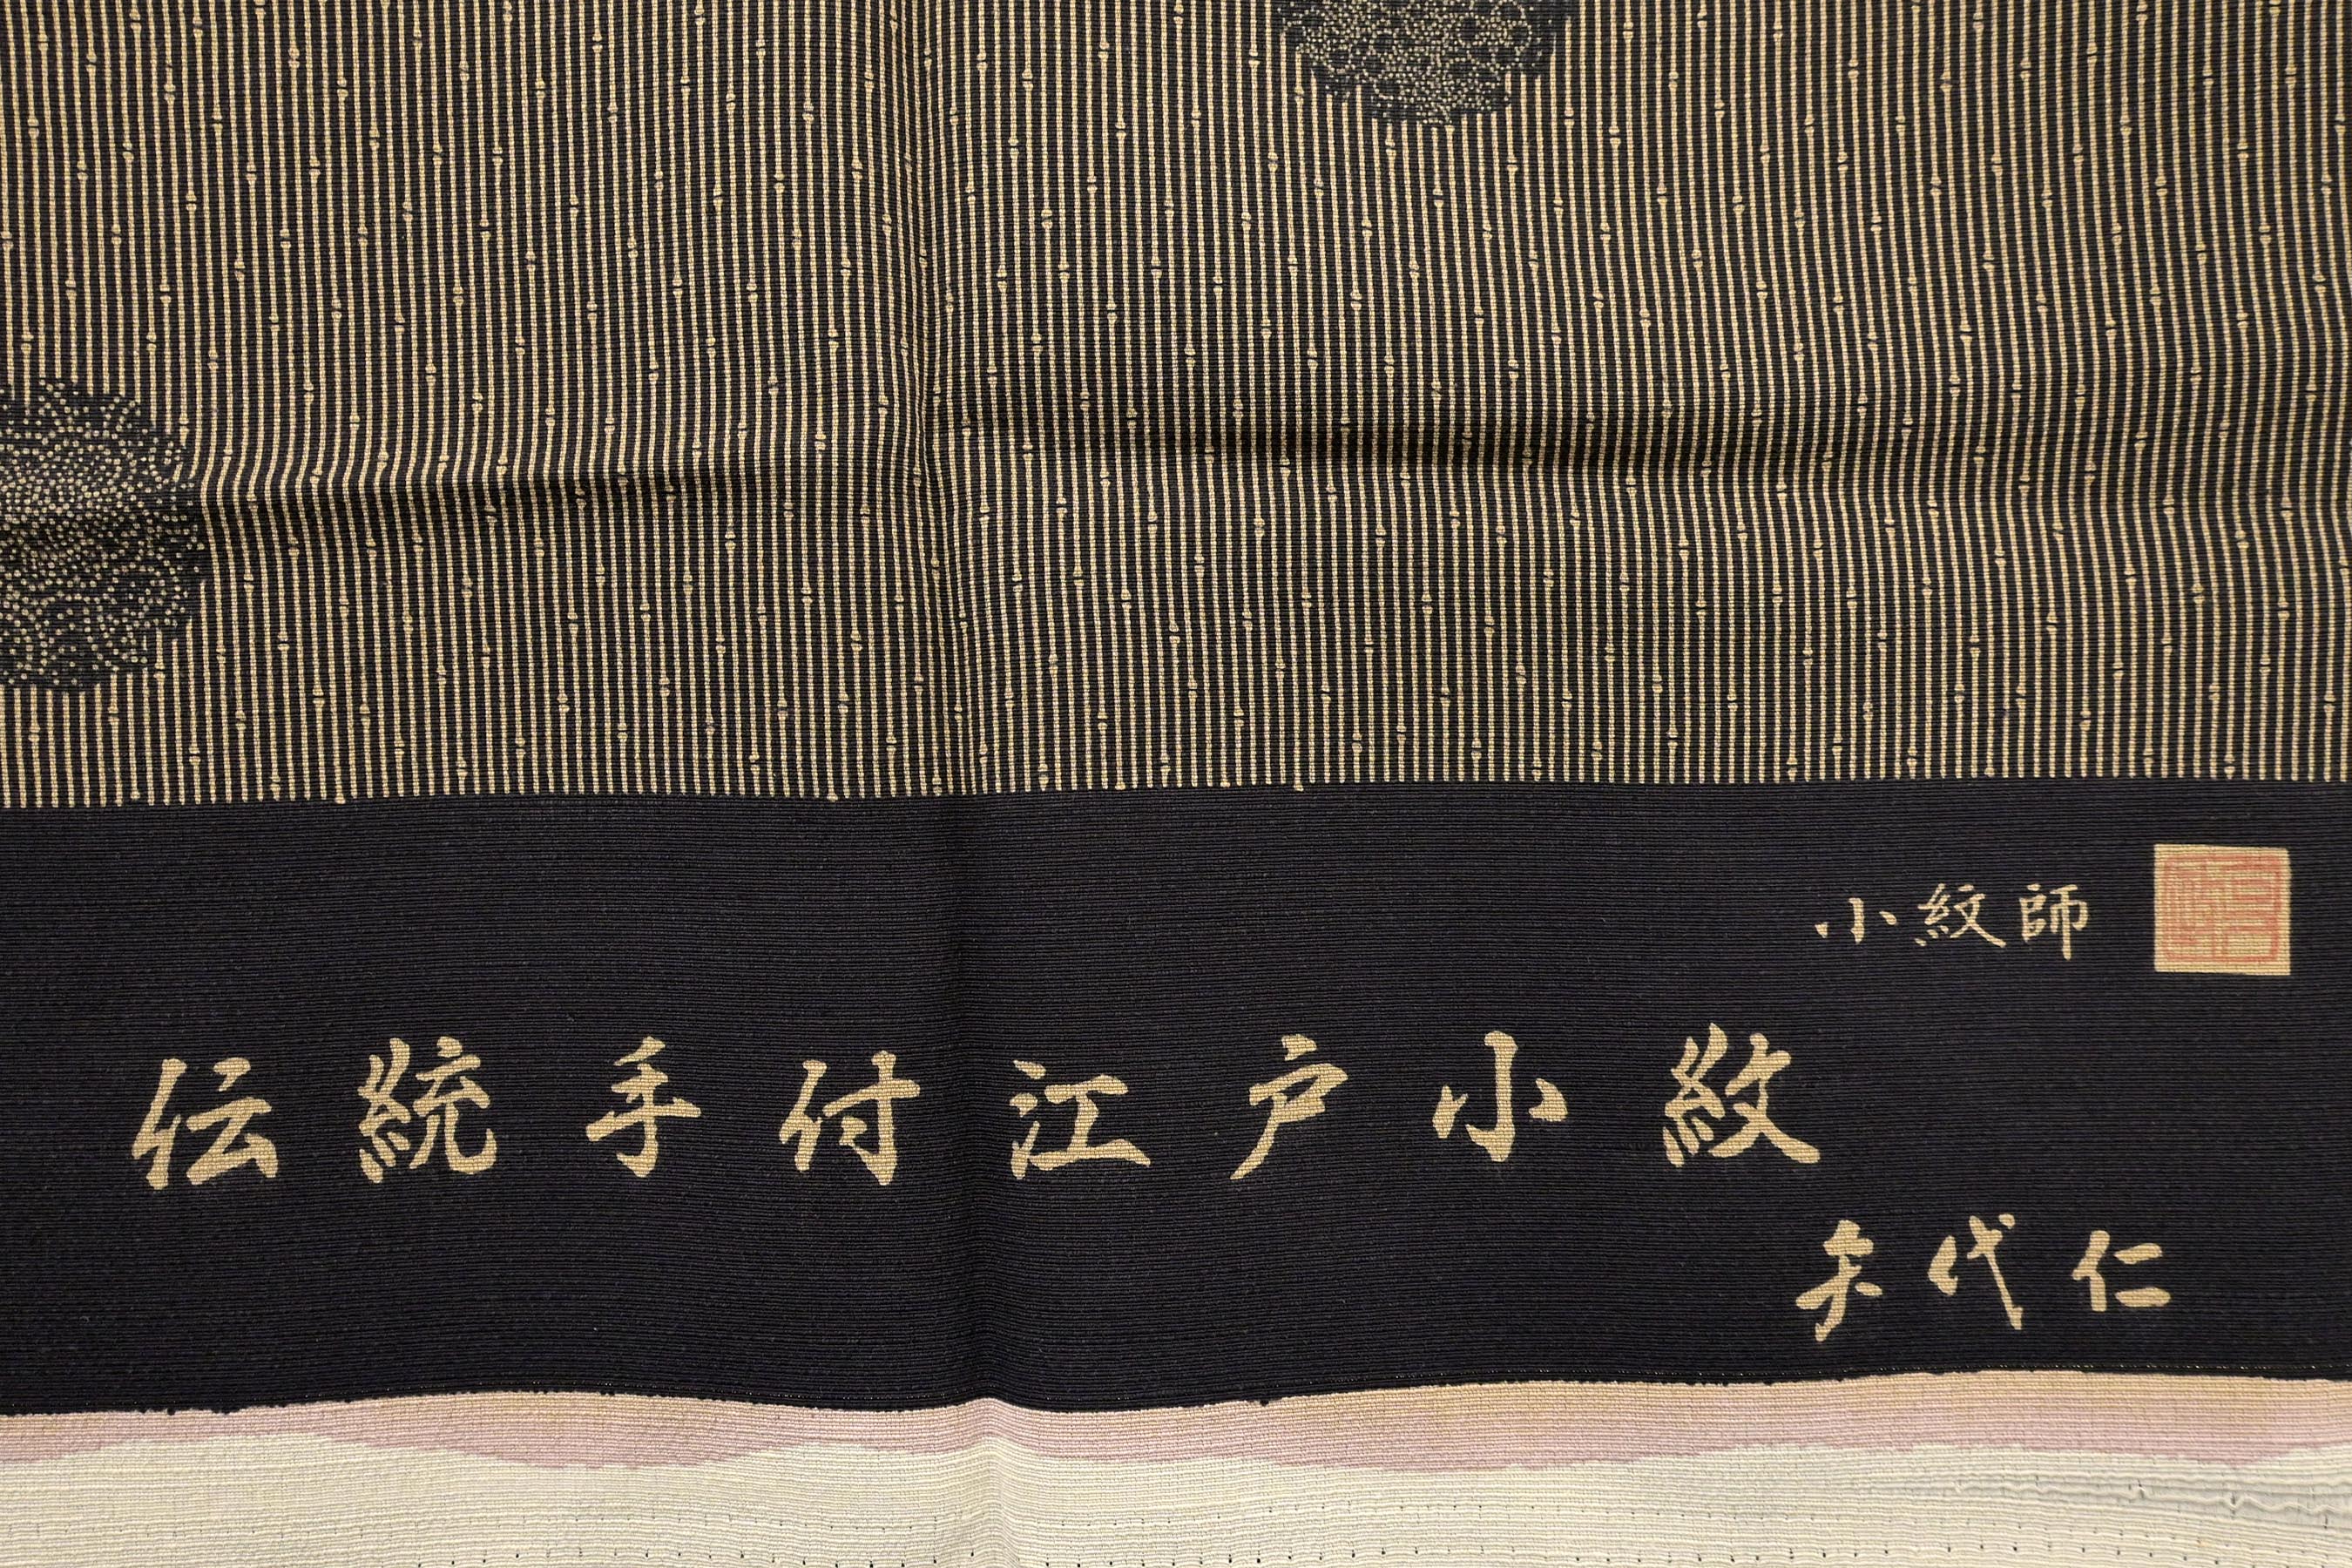 小紋師
伝統手付江戸小紋
矢代仁